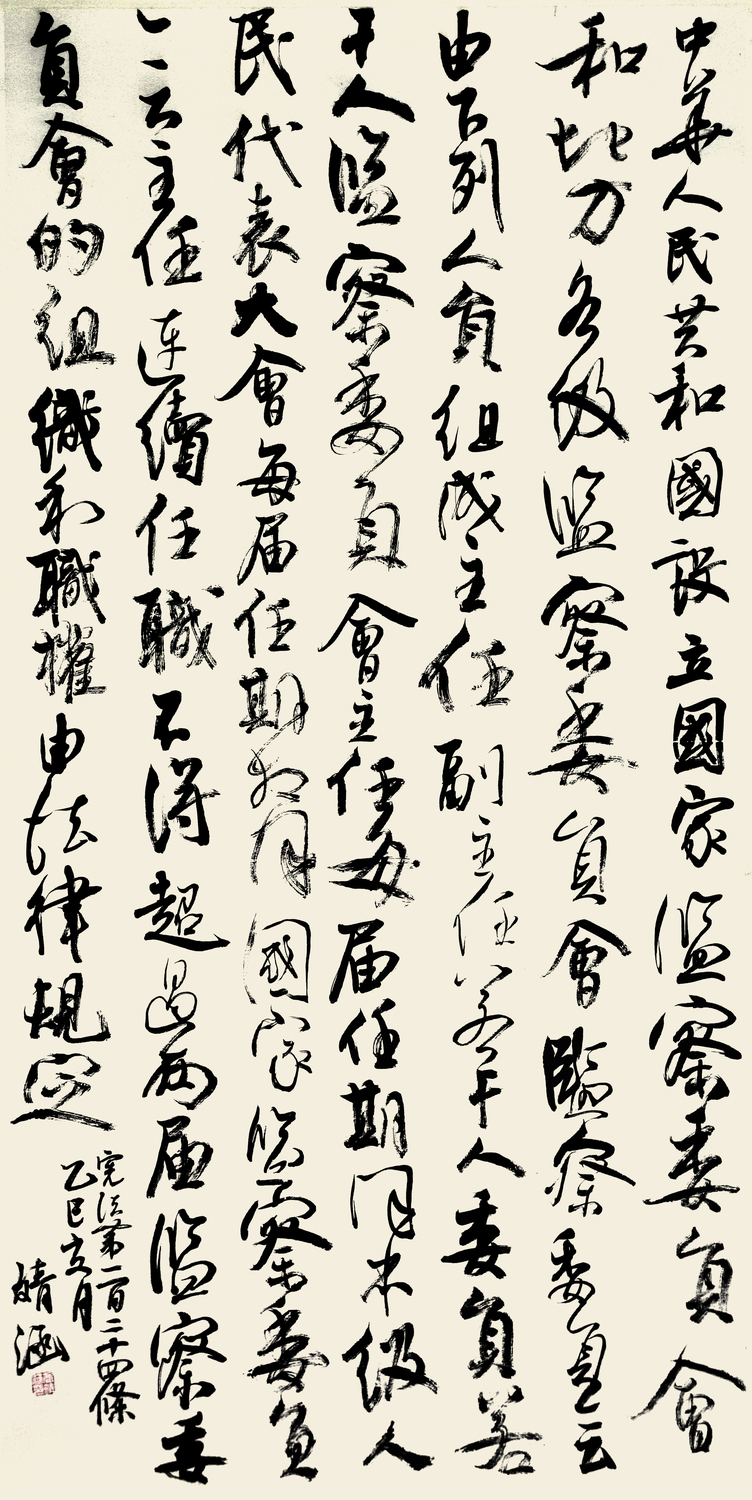 中華人民共和國設立國家监察委員會
和地方各級监察委員會監察委員会
由下列人員組成主任副主任若干人委員若
干人监察委員會主任每届任期同本級人
民代表大會每届任期相同國家监察委員
会主任連續任職不得超過兩届监察委
員會的組織和職權由法律規定
宪法第一百二十四條
乙巳亥月
婧涵